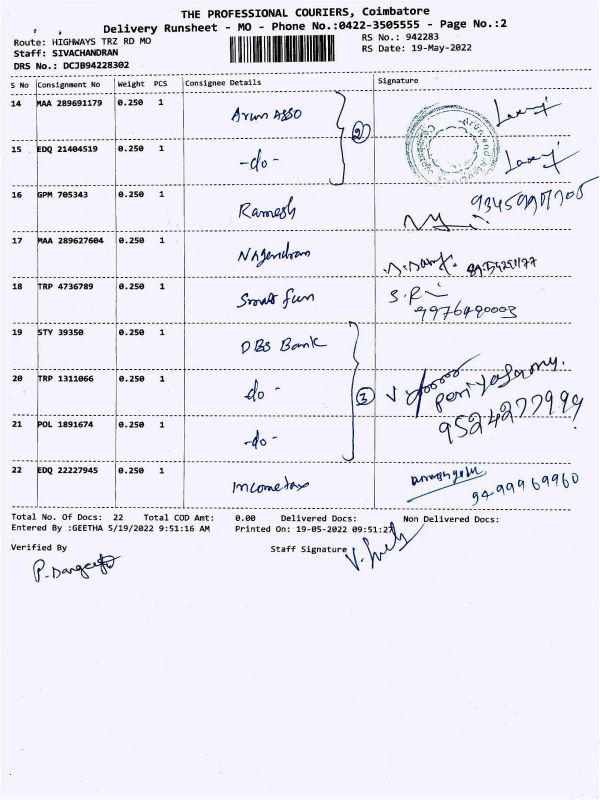 THE PROFESSIONAL COURIERS, Coimbatore
Delivery Runsheet - MO - Phone No.:0422-3505555 - Page No.:2
Route: HIGHWAYS TRZ RD MO
RS No.: 942283
Staff: SIVACHANDRAN
RS Date: 19-May-2022
DRS No.: DCJB94228302
S No Consignment No Weight PCS Consignee Details Signature
14 MAA 289691179 0.250 1 Arun ASSO
2
15 EDQ 21404519 0.250 1 -do-
16 GPM 705343 0.250 1 Ramesh
17 MAA 289627604 0.250 1 Nagendran
18 TRP 4736789 0.250 1 Smat fun S.Ri
9976490003
19 STY 39350 0.250 1 DBS Bank
20 TRP 1311066 0.250 1 do - 3 Periyasamy.
21 POL 1891674 0.250 1 -do- 9524277999
22 EDQ 22227945 0.250 1 Incometax
9499969960
Total No. Of Docs: 22 Total COD Amt: 0.00 Delivered Docs: Non Delivered Docs:
Entered By :GEETHA 5/19/2022 9:51:16 AM Printed On: 19-05-2022 09:51:27
Verified By Staff Signature